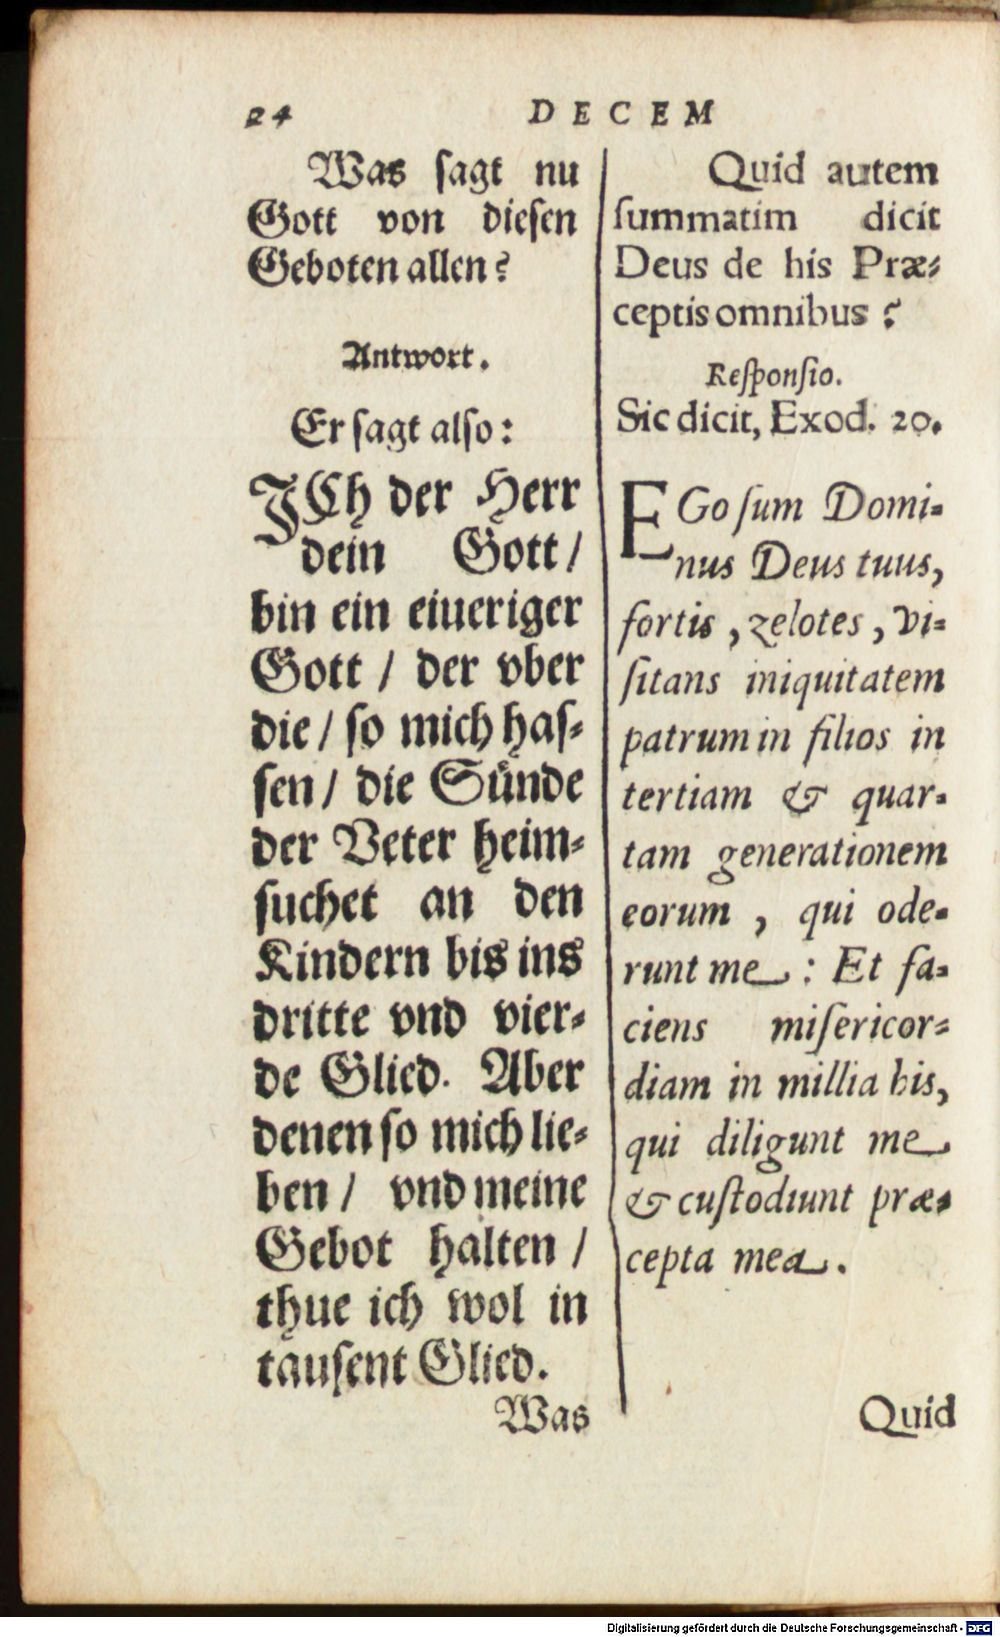 24
DECEM
Was ſagt nu
Gott von dieſen
Geboten allen?
Antwort.
Er ſagt alſo:
JCh der Herr
dein Gott/
bin ein eiueriger
Gott / der vber
die / ſo mich haſ⸗
ſen / die Sünde
der Veter heim⸗
ſuchet an den
Kindern bis ins
dritte vnd vier⸗
de Glied. Aber
denen ſo mich lie⸗
ben / vnd meine
Gebot halten /
thue ich wol in
tauſent Glied.
Was
Quid autem
ſummatim dicit
Deus de his Præ⸗
ceptis omnibus ?
Reſponſio.
Sic dicit, Exod. 20.
EGo ſum Domi⸗
nus Deus tuus,
fortis , zelotes , vi⸗
ſitans iniquitatem
patrum in filios in
tertiam & quar⸗
tam generationem
eorum , qui ode⸗
runt me : Et fa⸗
ciens miſericor⸗
diam in millia his,
qui diligunt me
& cuſtodiunt præ⸗
cepta mea .
Quid
Digitalisierung gefördert durch die Deutsche Forschungsgemeinschaft - DFG